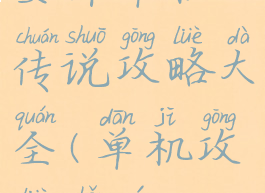 chuán shuō gōng lüè dà
传说攻略大
quán dān jī gōng
全(单机攻